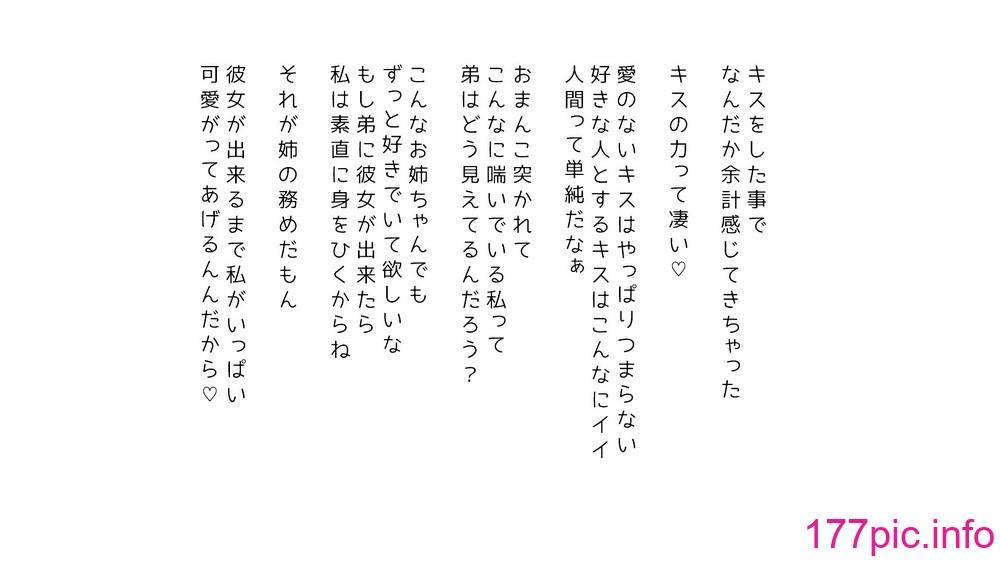 キスをした事で
なんだか余計感じてきちゃった
キスの力って凄い♡
愛のないキスはやっぱりつまらない
好きな人とするキスはこんなにイイ
人間って単純だなぁ
おまんこ突かれて
こんなに喘いでいる私って
弟はどう見えてるんだろう？
こんなお姉ちゃんでも
ずっと好きでいて欲しいな
もし弟に彼女が出来たら
私は素直に身をひくからね
それが姉の務めだもん
彼女が出来るまで私がいっぱい
可愛がってあげるんだから♡
177pic.info